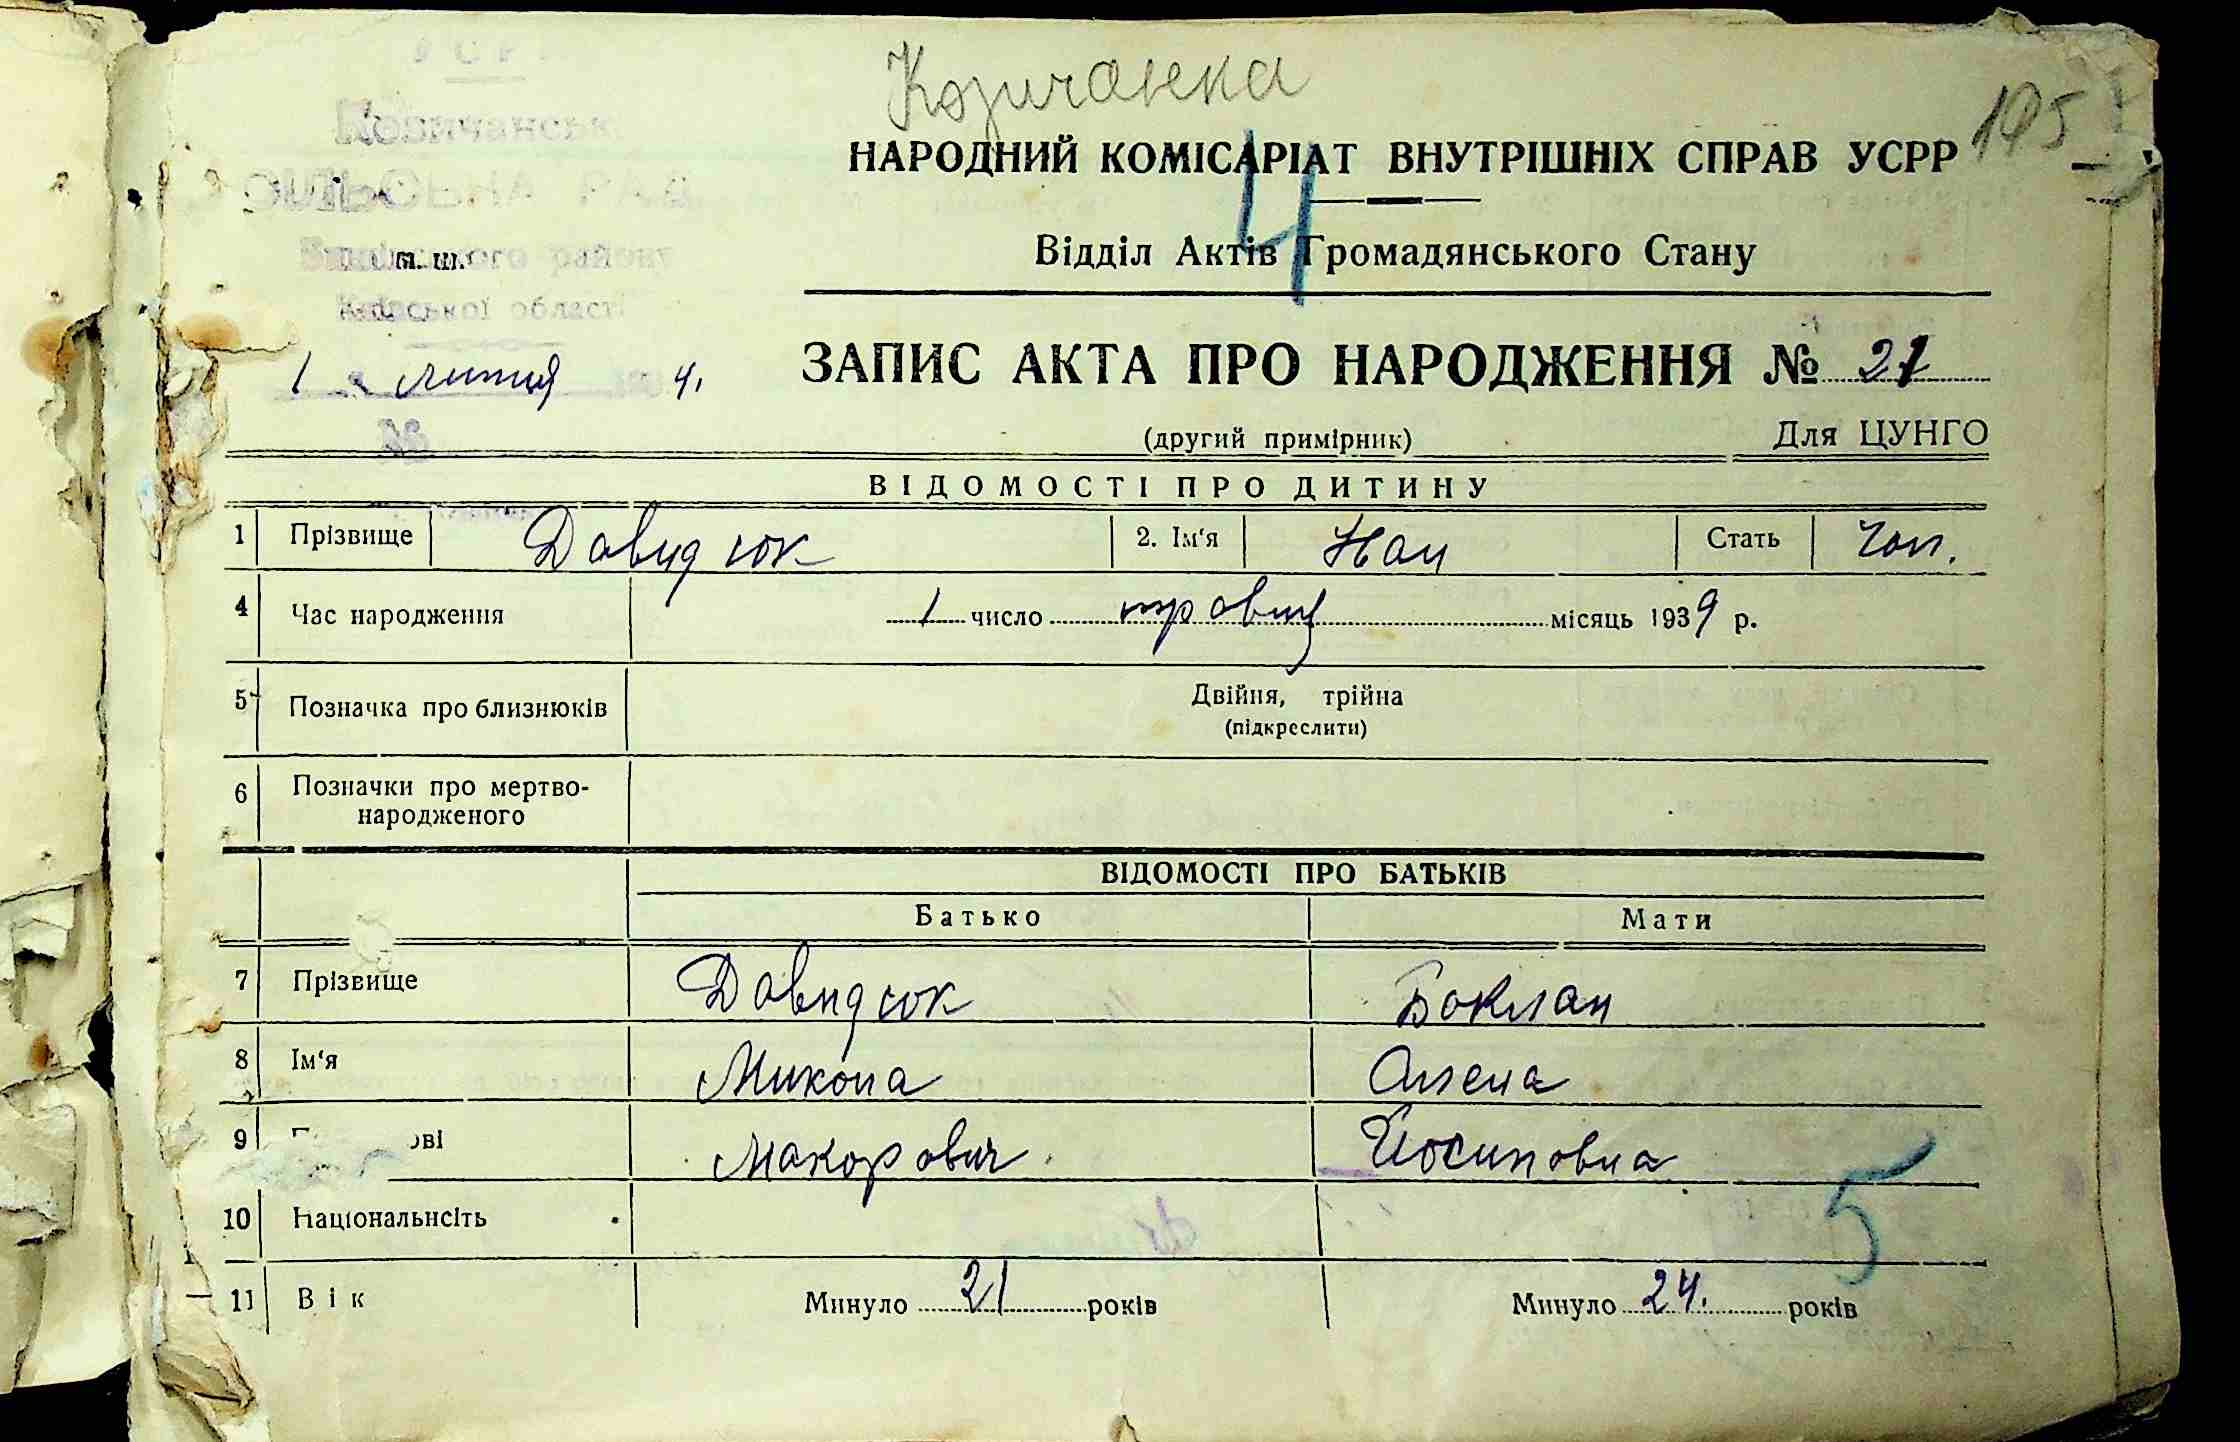 Козичанка
195
НАРОДНИЙ КОМІСАРІАТ ВНУТРІШНІХ СПРАВ УСРР
4
Відділ Актів Громадянського Стану
Козичанськ
СІЛЬСЬКА РАД
району
Київської області
1 липня 4.
№
ЗАПИС АКТА ПРО НАРОДЖЕННЯ № 21
(другий примірник) Для ЦУНГО
ВІДОМОСТІ ПРО ДИТИНУ
1 Прізвище Давидюк 2. Ім'я Стать Чол.
4 Час народження 1 число травня місяць 1939 р.
5 Позначка про близнюків Двійня, трійна
(підкреслити)
6 Позначки про мертво-
народженого
ВІДОМОСТІ ПРО БАТЬКІВ
Батько Мати
7 Прізвище Давидюк Баклан
8 Ім'я Микола Олена
9 ові Макарович Йосиповна
10 Національнсіть
5
11 Вік Минуло 21 років Минуло 24. років